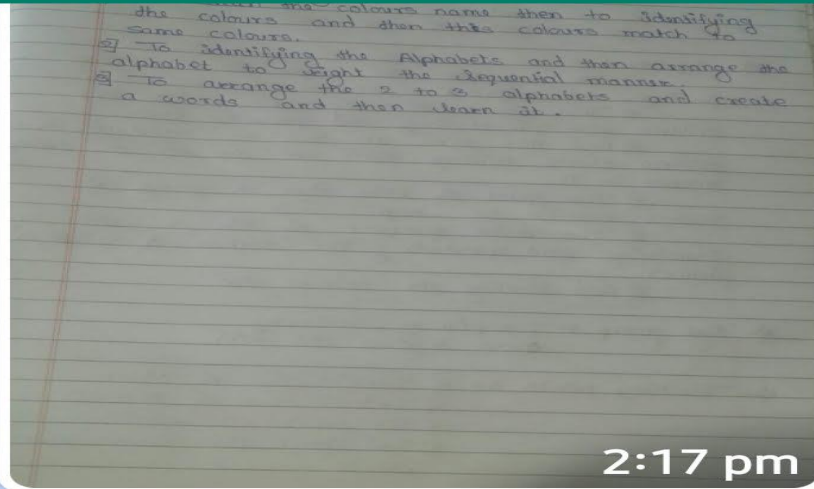 the colours name then to identifying
the colours and then this colours match to
same colours.
2] To identifying the Alphabets and then arrange the
alphabet to right the sequential manner.
3] To arrange the 2 to 3 alphabets and create
a words and then learn it.
2:17 pm